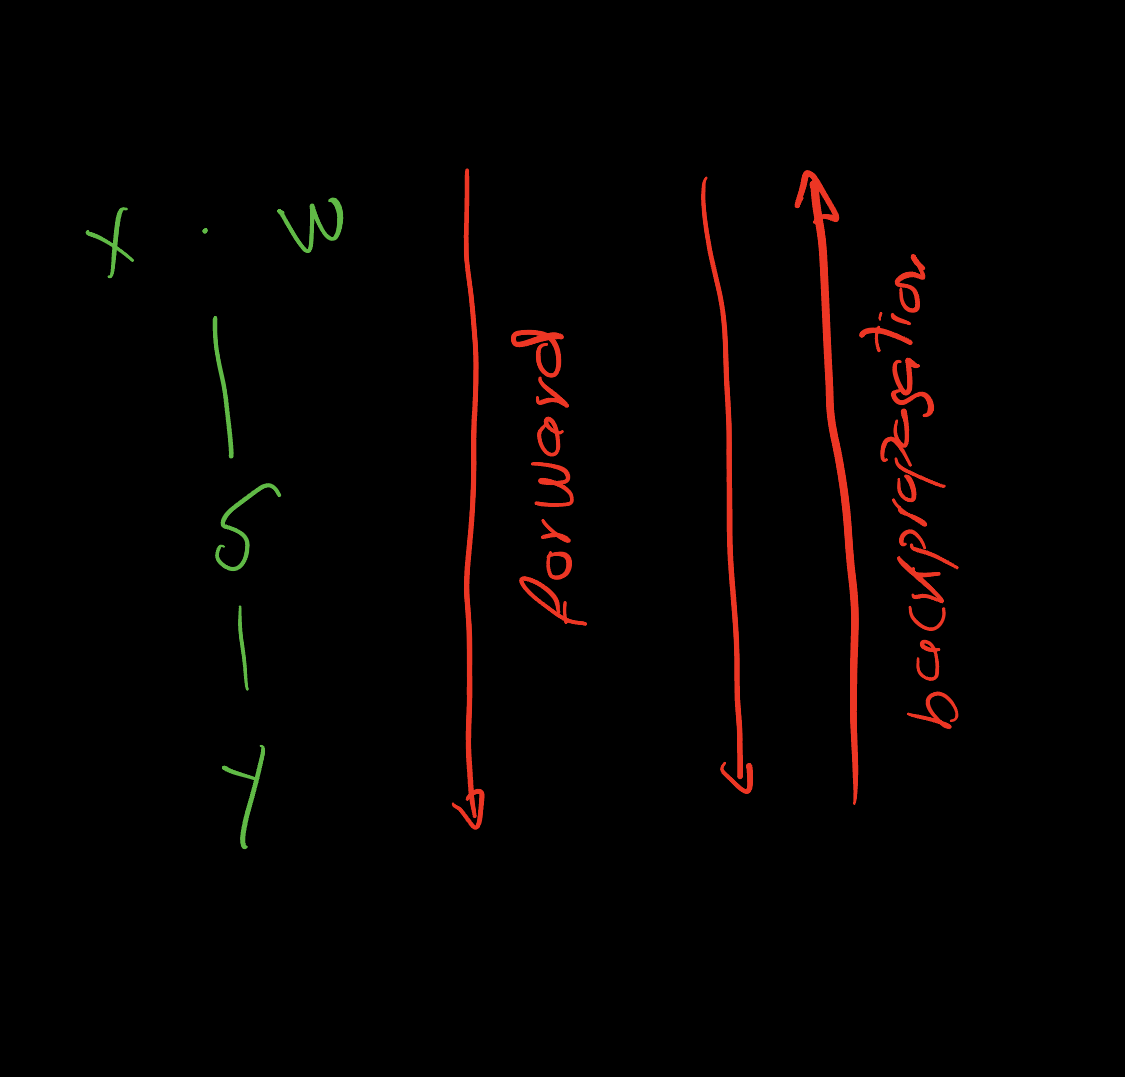 X · W
S
Y
forward
backpropagation